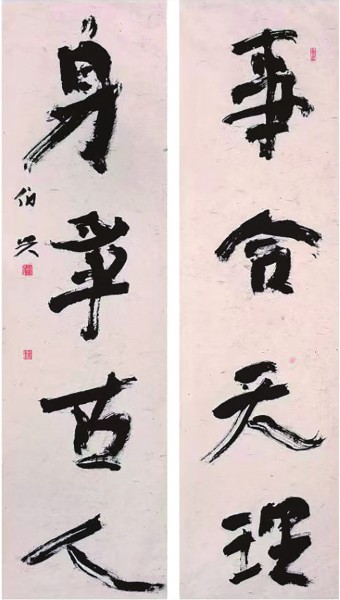 事合天理
身古人
伯